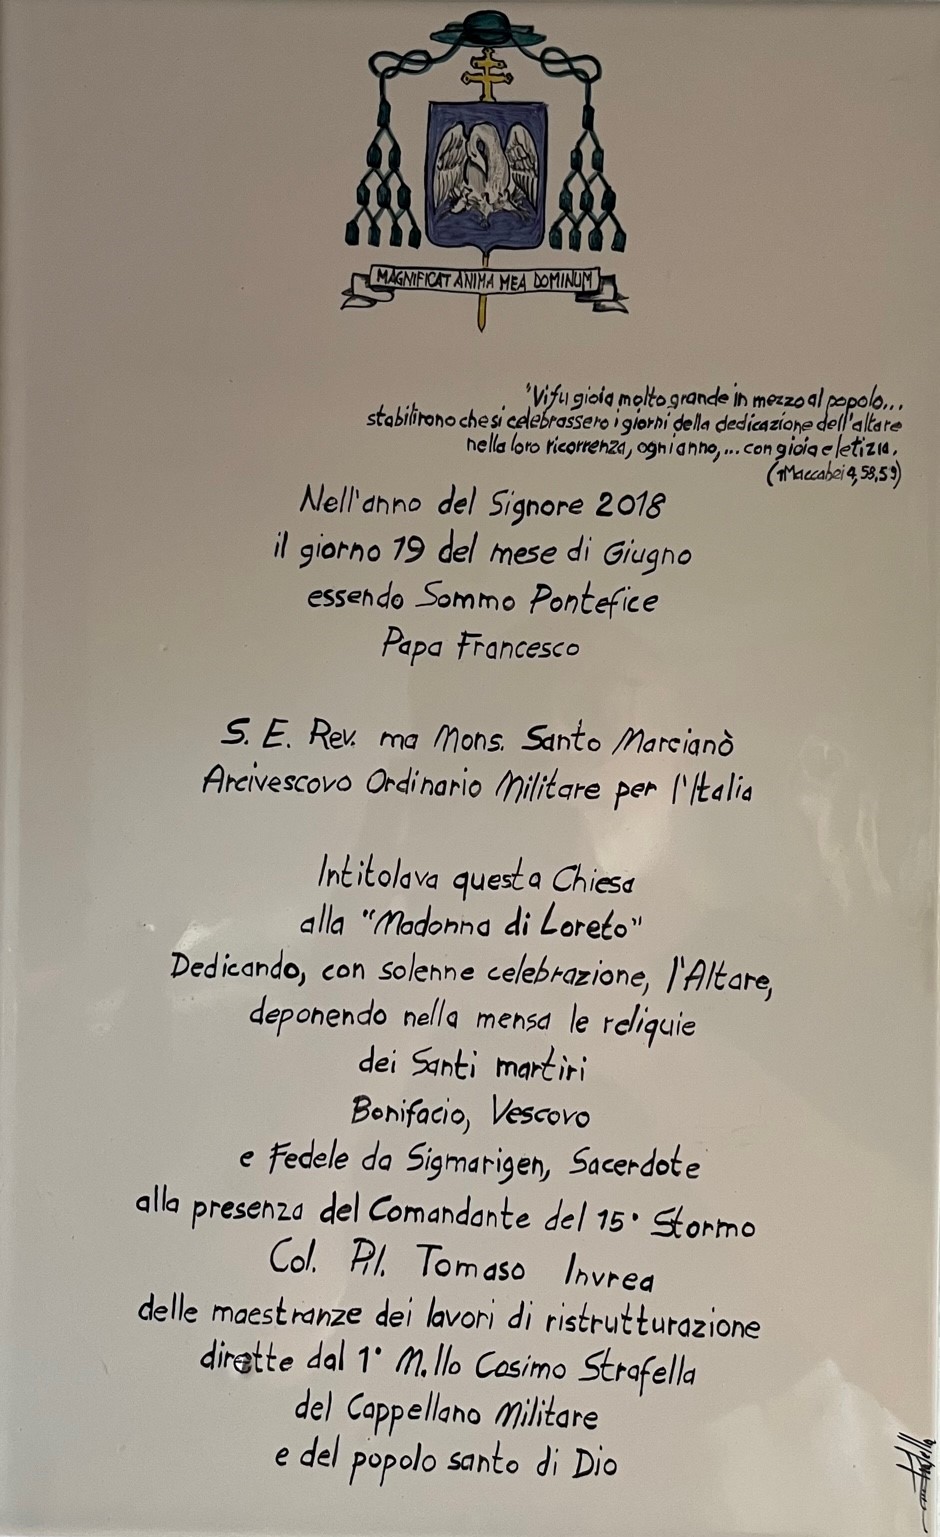 MAGNIFICAT ANIMA MEA DOMINUM
"Vi fu gioia molto grande in mezzo al popolo...
stabilirono che si celebrassero i giorni della dedicazione dell'altare
nella loro ricorrenza, ogni anno,... con gioia e letizia.
(1Maccabei 4,58,59)
Nell'anno del Signore 2018
il giorno 19 del mese di Giugno
essendo Sommo Pontefice
Papa Francesco
S. E. Rev. ma Mons. Santo Marcianò
Arcivescovo Ordinario Militare per l'Italia
Intitolava questa Chiesa
alla "Madonna di Loreto"
Dedicando, con solenne celebrazione, l'Altare,
deponendo nella mensa le reliquie
dei Santi martiri
Bonifacio, Vescovo
e Fedele da Sigmarigen, Sacerdote
alla presenza del Comandante del 15° Stormo
Col. Pil. Tomaso Invrea
delle maestranze dei lavori di ristrutturazione
dirette dal 1° M.llo Cosimo Strafella
del Cappellano Militare
e del popolo santo di Dio